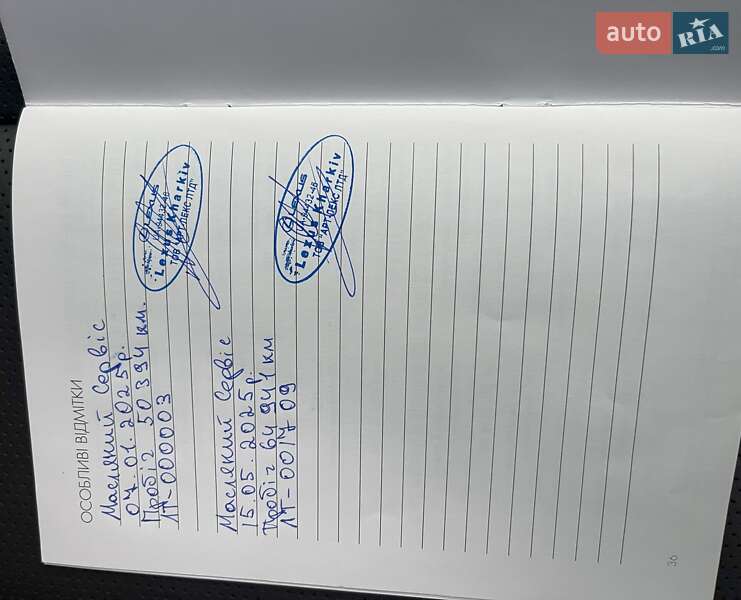 auto RIA.com
ОСОБЛИВІ ВІДМІТКИ
Масляний Сервіс
04.01.2025р.
Пробіг 50394 км.
ЛТ-000003
LEXUS
Lexus Kharkiv
ТОВ "АРТ ЛЕКС ЛТД"
Масляний Сервіс
15.05.2025р.
Пробіг 64941 км
ЛТ-0017 09
LEXUS
Lexus Kharkiv
ТОВ "АРТ ЛЕКС ЛТД"
36